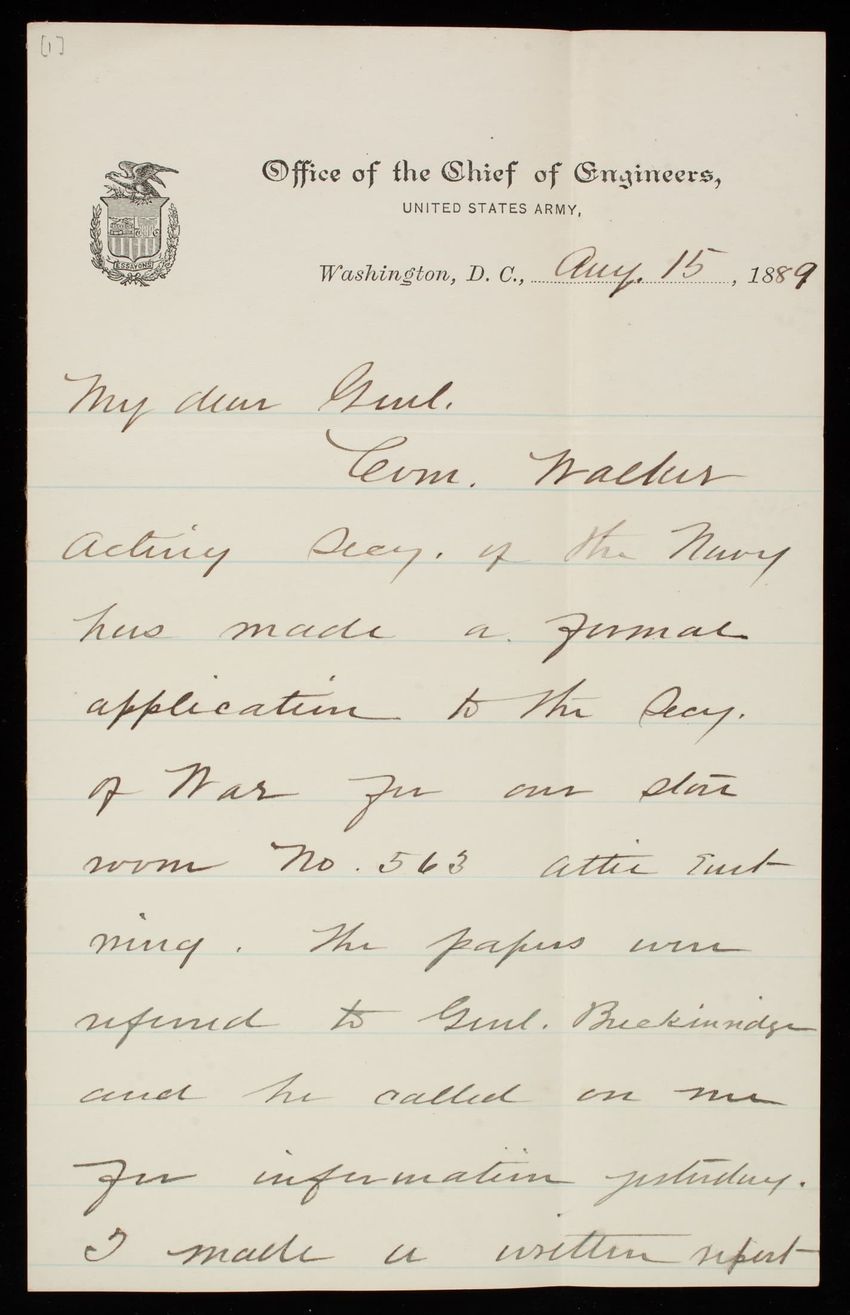 [1]
Office of the Chief of Engineers,
UNITED STATES ARMY,
ESSAYONS
Washington, D. C., Aug. 15, 1889
My dear Genl.
Com. Walker
Acting Secy. of the Navy
has made a formal
application to the Secy.
of War for our store
room No. 563 attic East
wing. The papers were
referred to Genl. Breckinridge
and he called on me
for information yesterday.
I made a written report